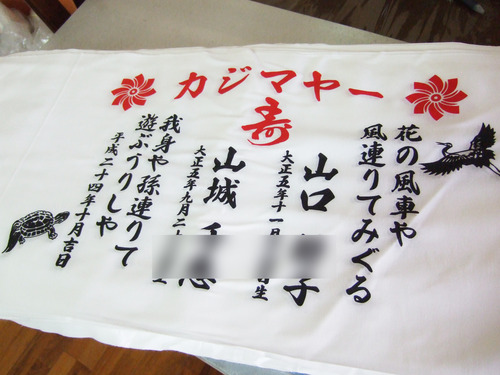 カジマヤー
寿
花の風車や
風連りてみぐる
大正五年十一月
生
山口
子
大正五年九月二
山城
我身や孫連りて
遊ぶうりしや
平成二十四年十月吉日